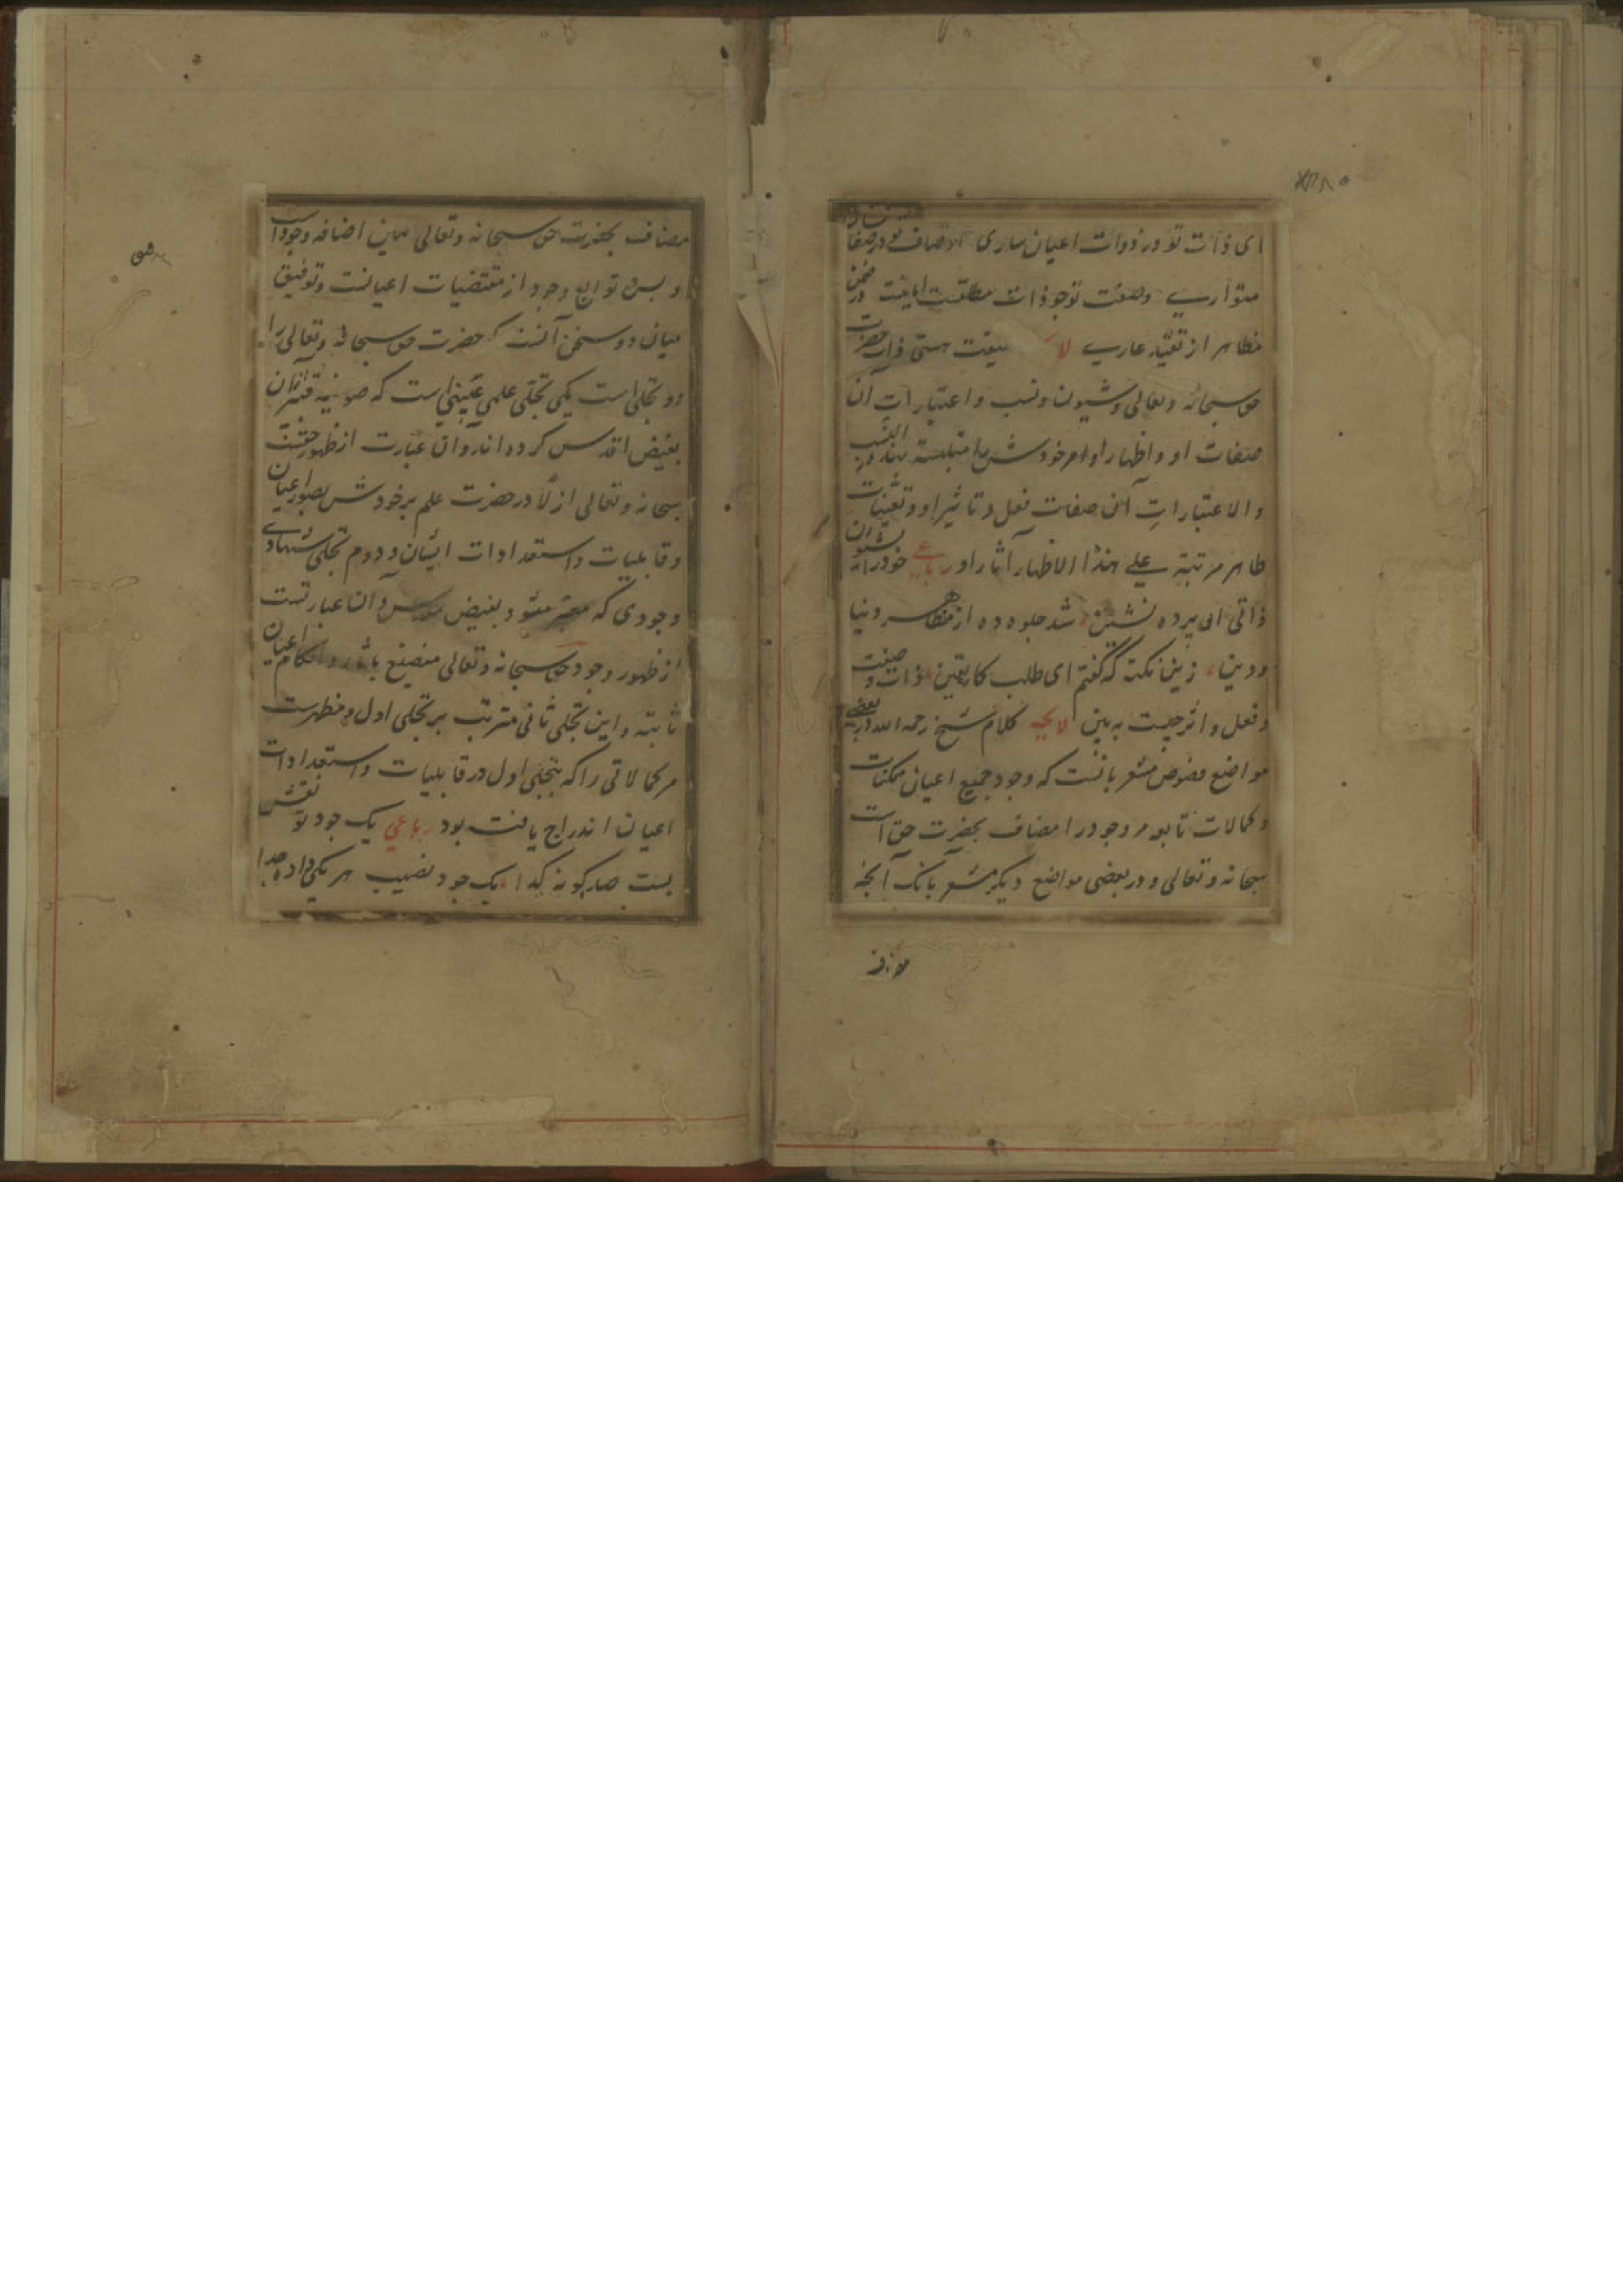 ای ذات تو در ذوات اعیان ساری اوصاف تو در صفاتشان
متواری وصف تو چو ذات مطلقست اما نیست در ضمن
مظاهر از تقید عاری حقیقت هستی ذات حضرت
حق سبحانه وتعالی و شیون و نسب و اعتبارات آن
صفات او و اظهار او مر خودش را متلبسة بهذه النسب
والاعتبارات آن صفات فعل و تاثیر او و تعینات
ظاهر مرتبة علی هذا الاظهار آثار او رباعی خود را بشئون
ذاتی آن پرده نشین شد جلوه ده از مظاهر دنیا
و دین زین نکته که گفتم ای طلب کار یقین ذات و صفت
و فعل و اثر چیست ببین لایحه کلام شیخ رحمه الله در بعضی
مواضع فصوص مشعر بانست که وجود جمیع اعیان ممکنات
و کمالات تابعه مر وجود را مضاف بحضرت حق است
سبحانه وتعالی و در بعضی مواضع دیگر مشعر بانک آنچه
مضاف بحضرت حق سبحانه وتعالی همین اضافه وجود است
و بس و توابع وجود از مقتضیات اعیانست و توفیق
میان دو سخن آنست که حضرت حق سبحانه وتعالی را
دو تجلی است یکی تجلی علمی غیبی است که صوفیه تعبیر ازان
بفیض اقدس کرده اند و آن عبارت از ظهور حقست
سبحانه وتعالی ازلا در حضرت علم بر خودش بصور اعیان
و قابلیات و استعدادات ایشان و دوم تجلی شهادی
وجودی که معبر میشود بفیض مقدس و آن عبارتست
از ظهور وجود حق سبحانه وتعالی منصبغ باثار و احکام اعیان
ثابته و این تجلی ثانی مترتب بر تجلی اول و مظهرست
مر کمالاتی را که بتجلی اول در قابلیات و استعدادات
اعیان اندراج یافته بود رباعی یک جود تو نقش
بست صد گونه گدا یک جود نصیب هر یکی داده جدا